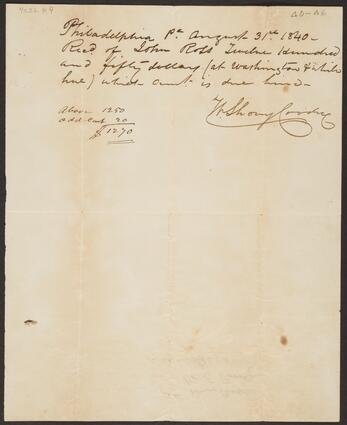 4026.84
Philadelphia Pa August 31st 1840-
Recd of John Ross Twelve Hundred
and fifty dollars (at Washington &
) which amt is due him-
Wm Shorey Coodey
Above 1250
Add 20
$ 1270